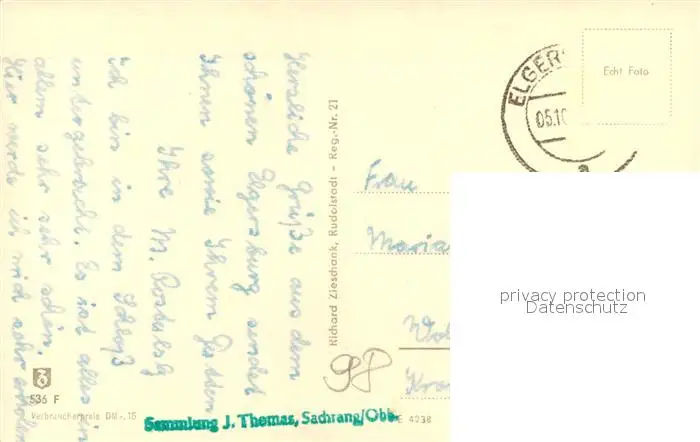 Herzliche Grüße aus dem
schönen Elgersburg sendet
Ihnen sowie Ihrem Gatten
Ihre M.
Ich bin in dem Schloß
untergebracht. Es ist alles in
allem sehr sehr schön.
Hier werde ich mich sehr erholen
Richard Zieschank, Rudolstadt - Reg.-Nr. 21
ELGER
05.10
a
Echt Foto
Frau
Maria
privacy protection
Datenschutz
98
536 F
Verbraucherpreis DM -,15
Sammlung J. Thomas, Sachrang/Obb.
E 4238